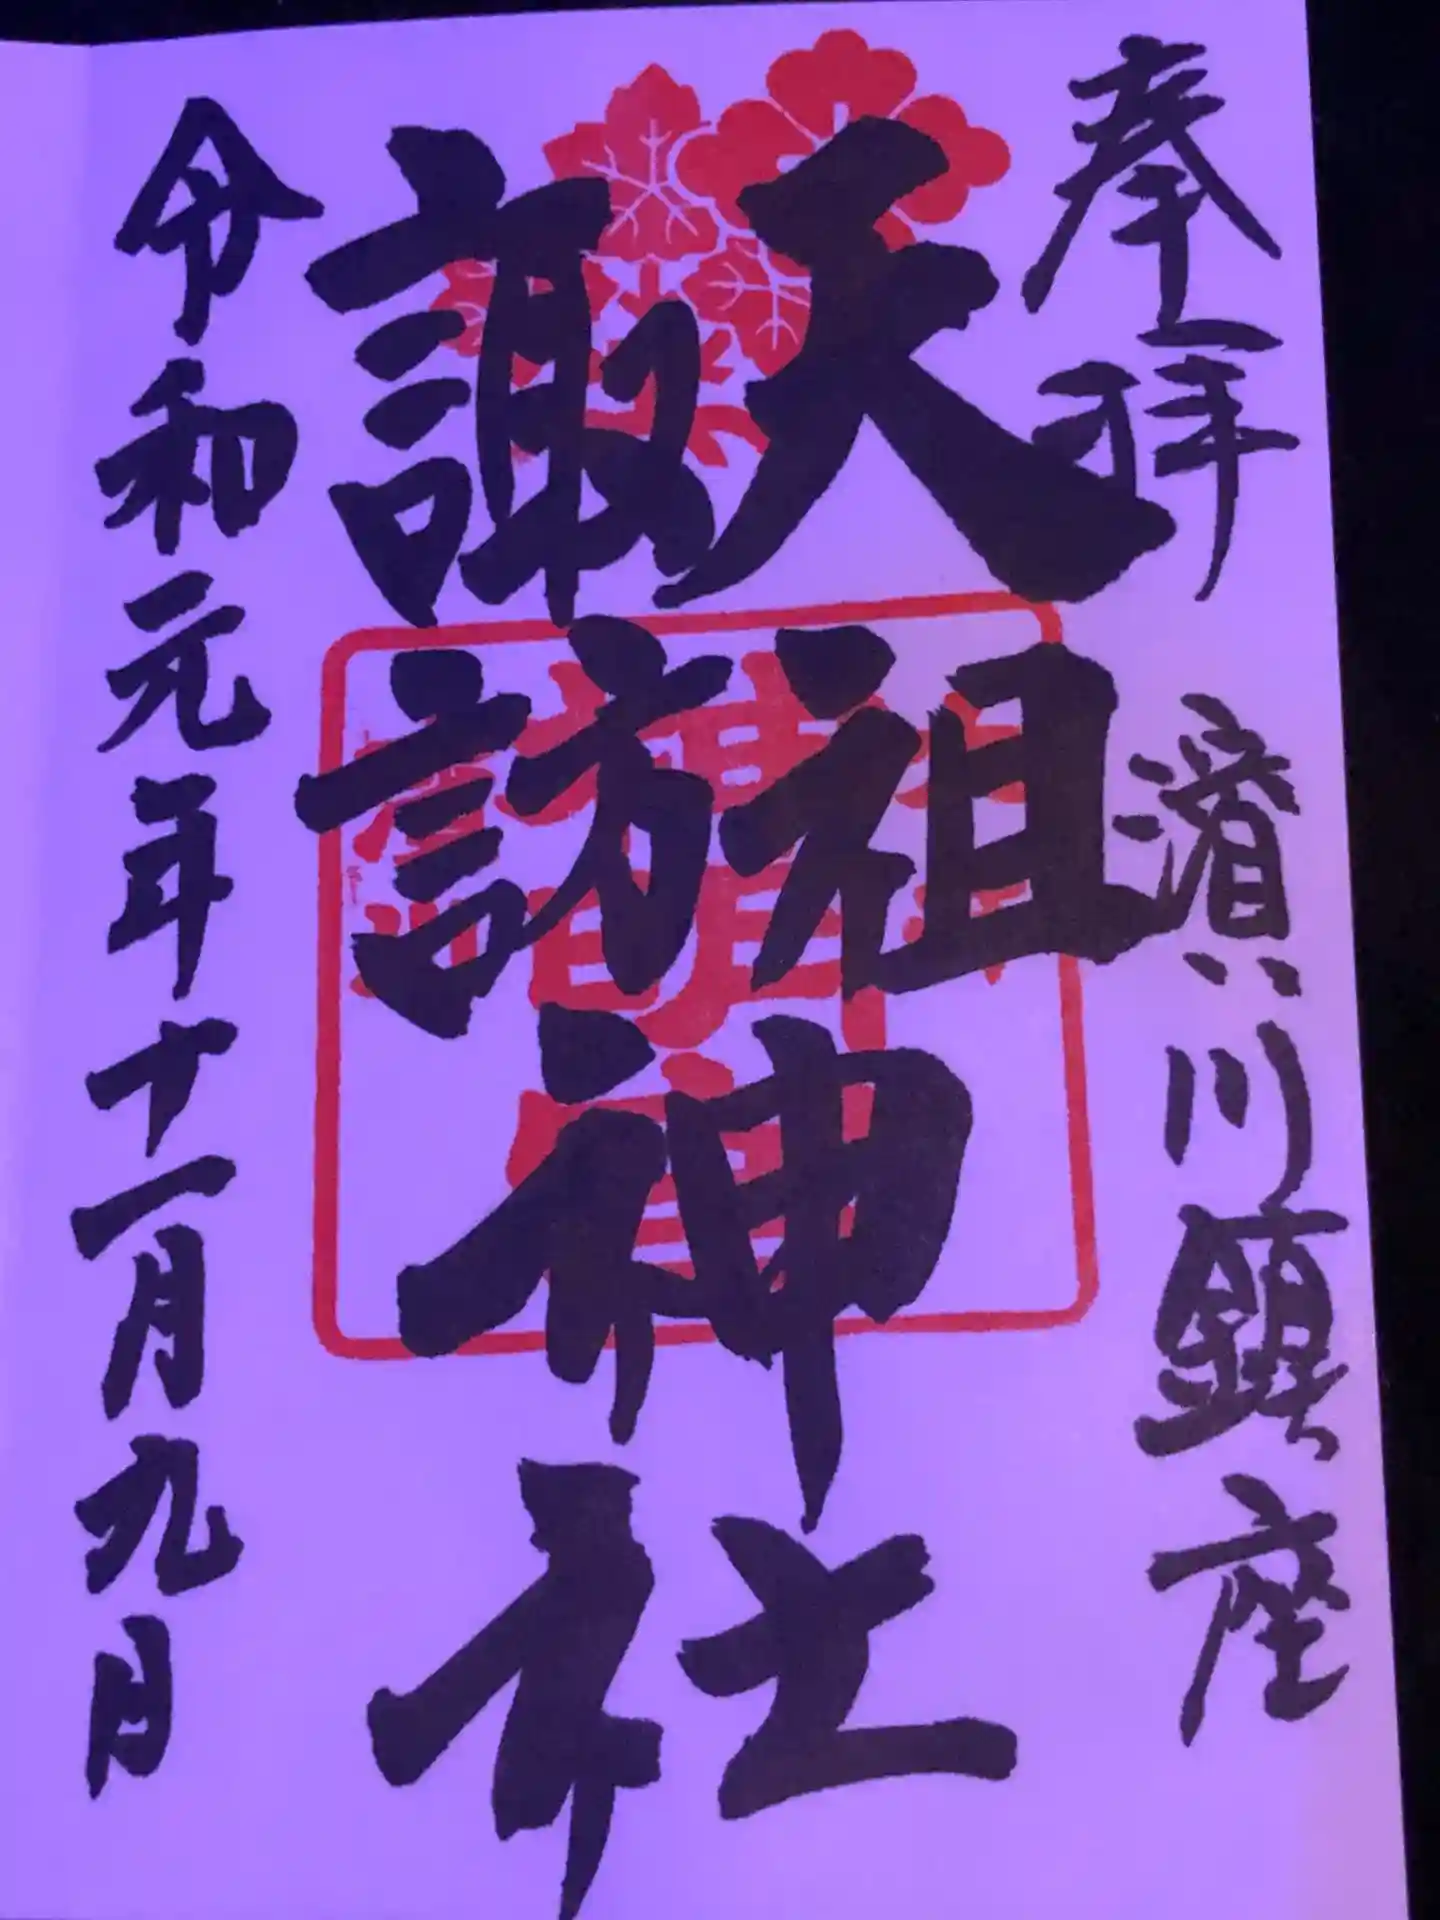 奉拝 濱川鎮座
天祖
諏訪
神社
令和元年十一月九日